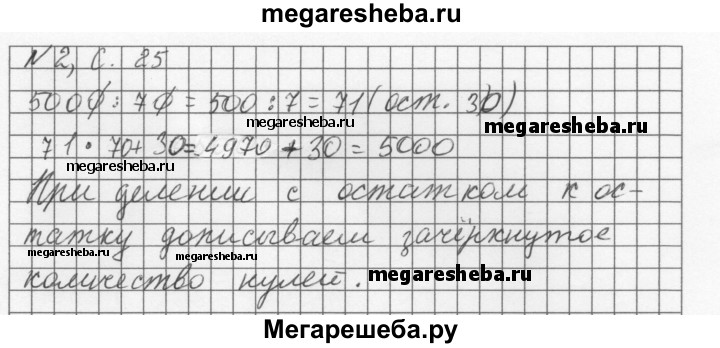 megaresheba.ru
N 2, с. 25
5000 : 70 = 500 : 7 = 71 (ост. 30)
megaresheba.ru
megaresheba.ru
71 • 70 + 30 = 4970 + 30 = 5000
megaresheba.ru
При делении с остатком к ос-
татку дописываем зачёркнутое
megaresheba.ru
megaresheba.ru
количество нулей.
megaresheba.ru
Мегарешеба.ру